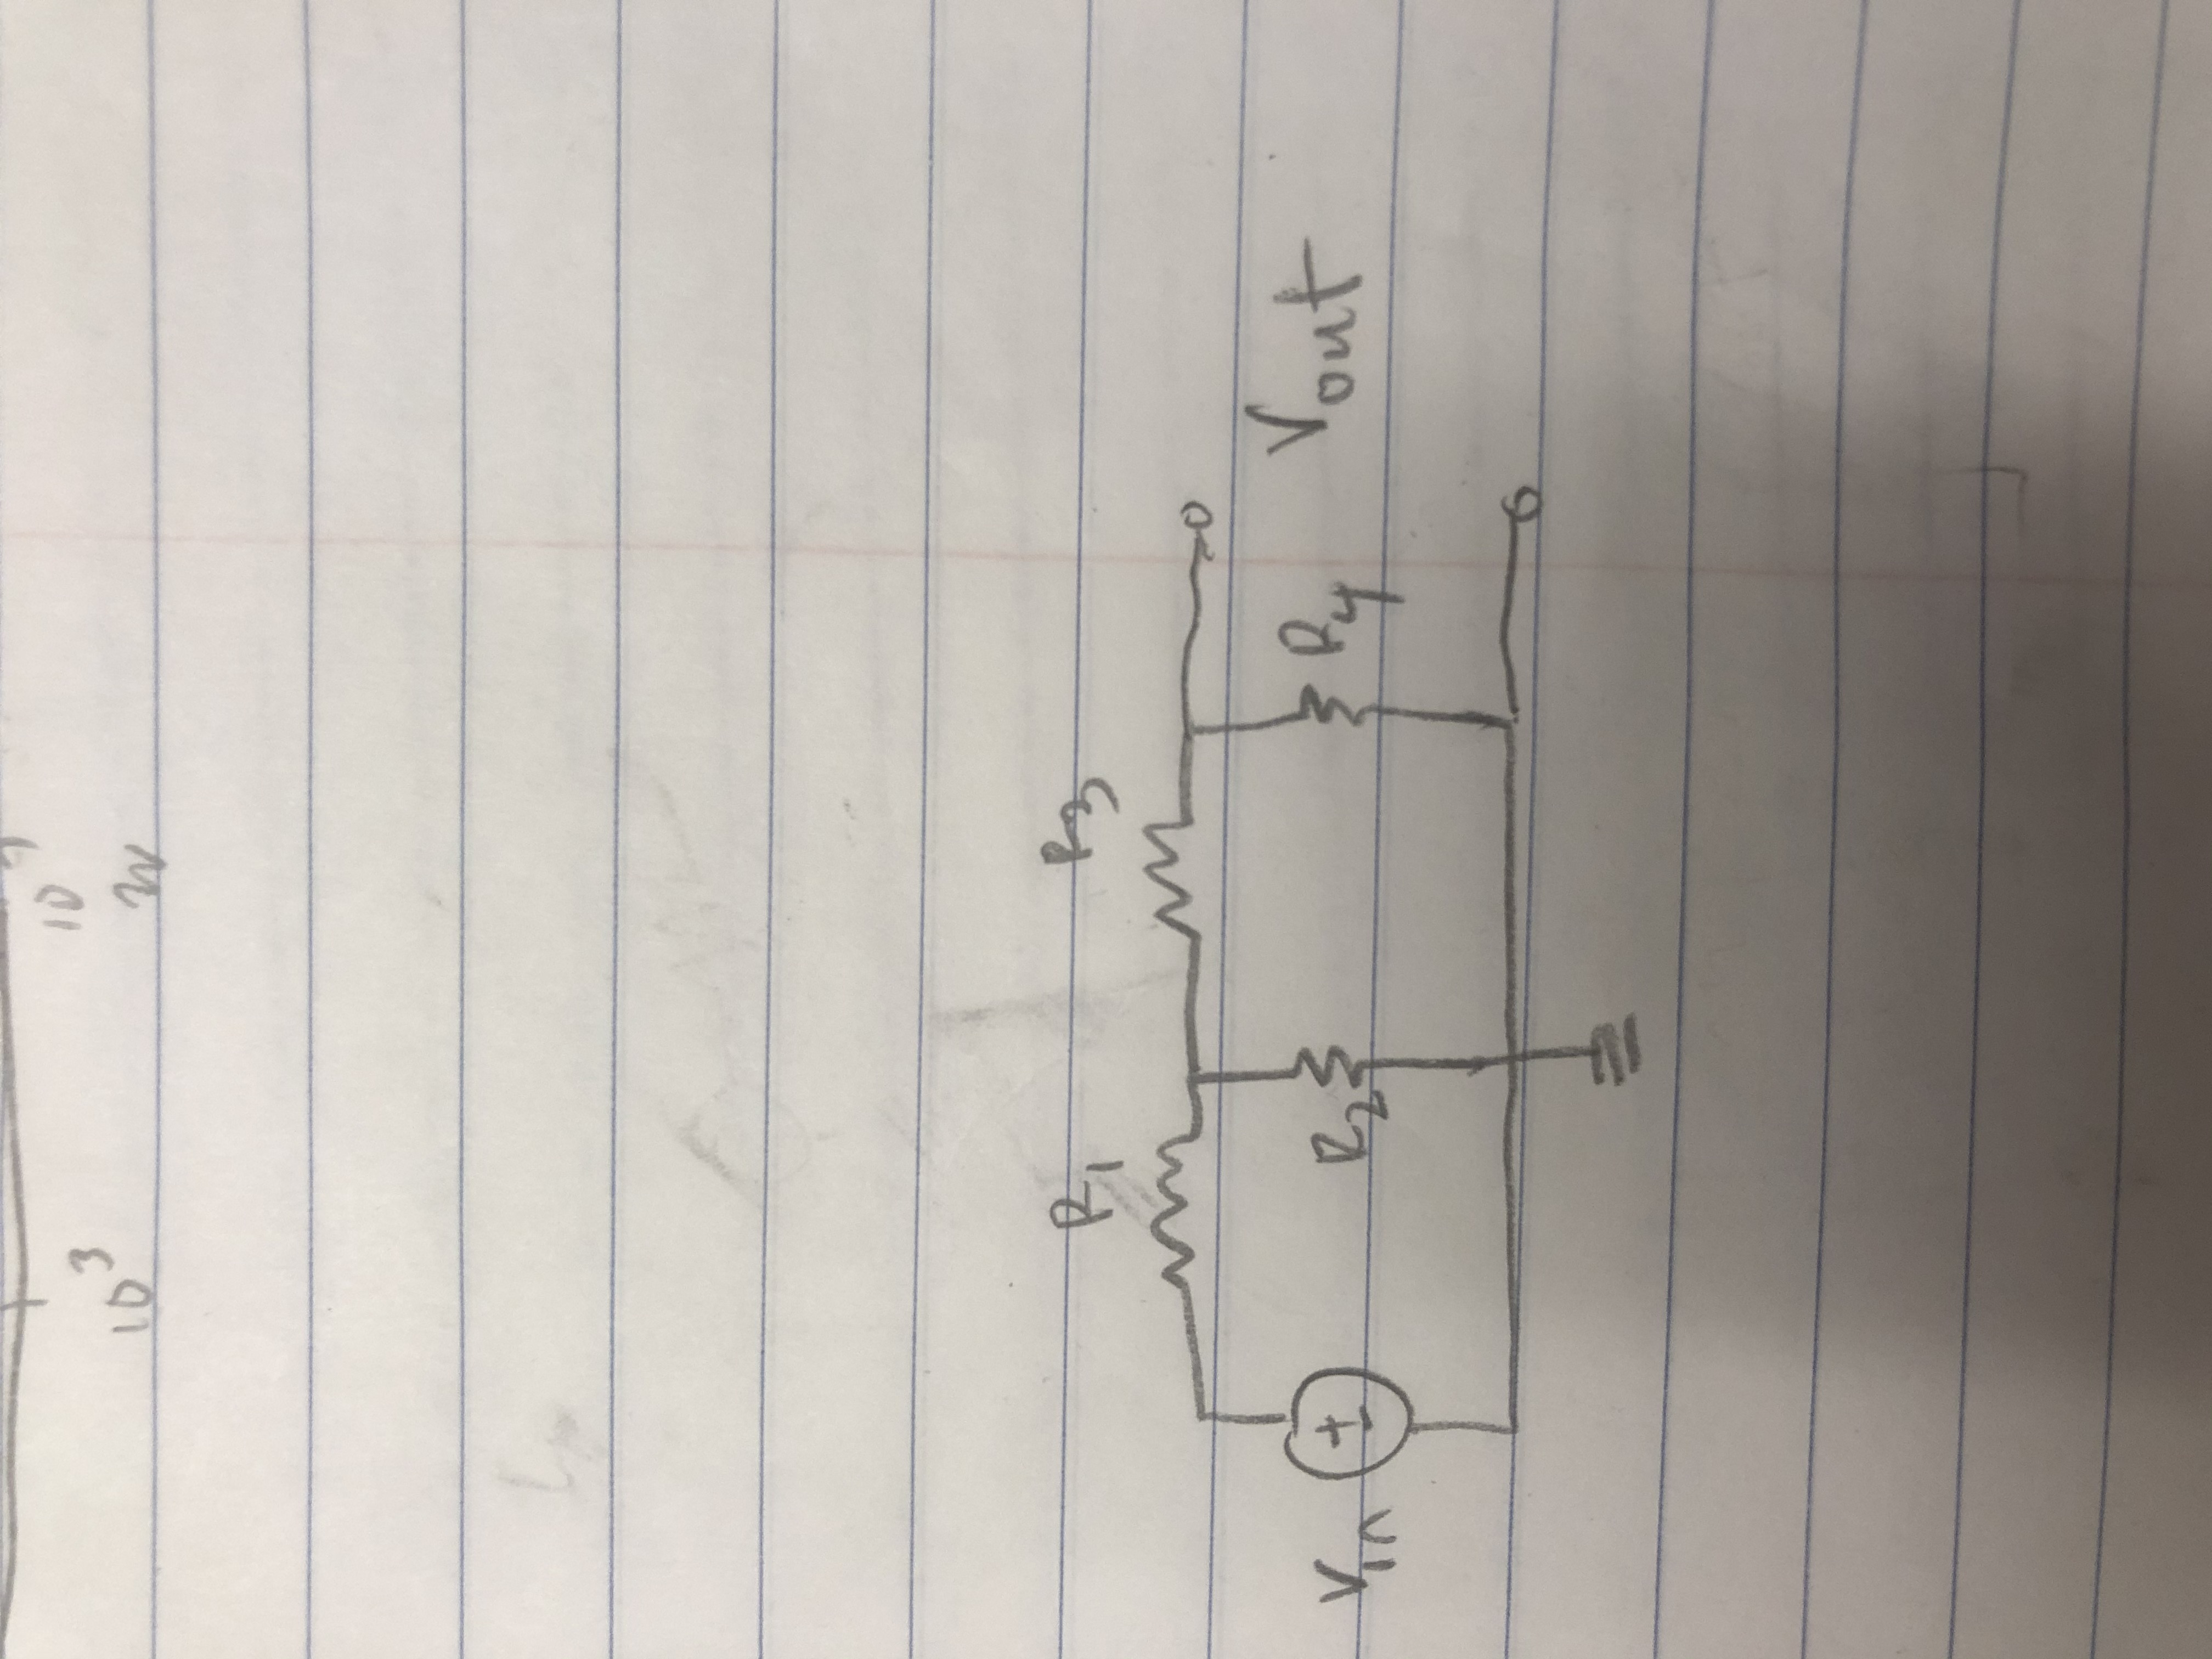 10³
10
w
R₁
R₃
Vin
+
-
R₂
R₄
Vout